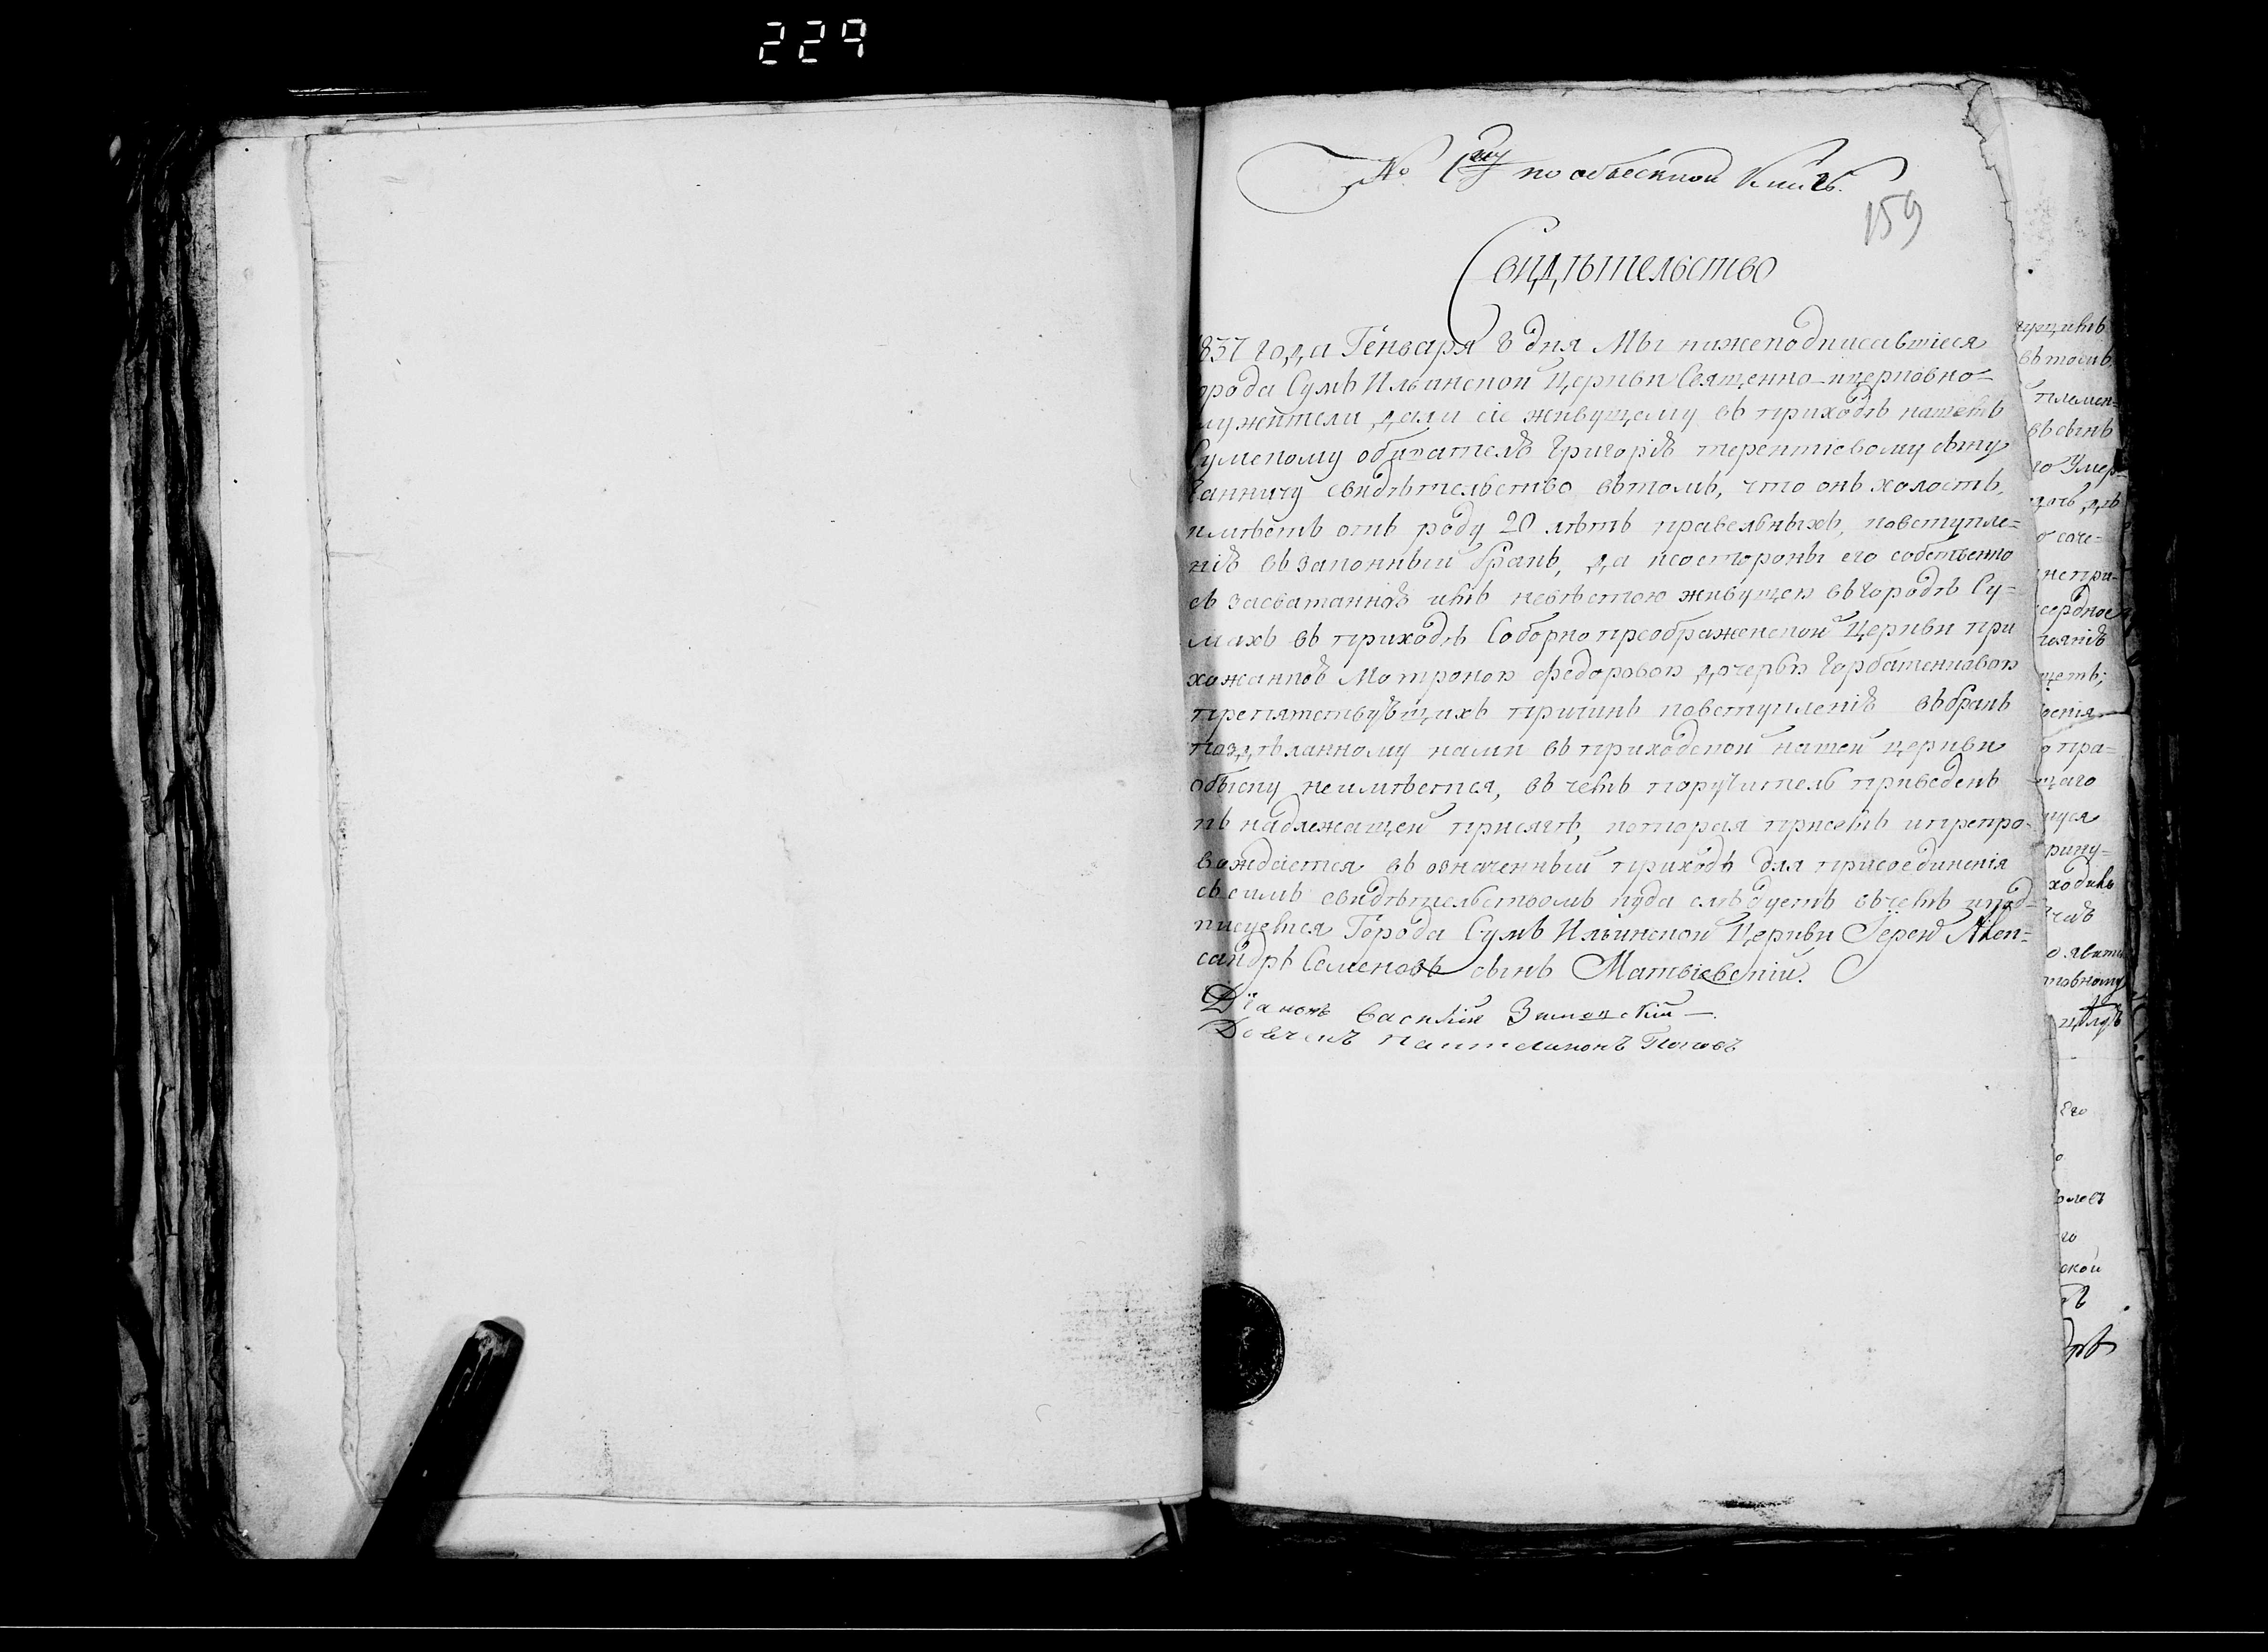 229
№ по обыскной книгѣ.
159
Свидѣтельство
1837 года Генваря 8 дня Мы нижеподписавшіеся
города Сумъ Ильинской Церкви Священно-ицерковно-
служители дали сіе живущему въ приходѣ нашемъ
Сумскому обывателю Григорію терентіевому сыну
свидѣтельство втомъ, что онъ холостъ,
имѣетъ отъ роду 20 лѣтъ правельныхъ, повступле-
нію взаконный бракъ, да исостороны его собственно
съ засватанною имъ невѣстою живущею вгородѣ Су-
махъ въ приходѣ Соборнопреображенской Церкви при
хожанкою Матроною федоровою дочерью Горбатенковою
препятствующихъ причинъ повступленію вбракъ
поздѣланному нами въ приходской нашей церкви
обыску неимѣется, въ чемъ поручитель приведенъ
къ надлежащей присягѣ, которая присемъ ипрепро-
вождается въ означенный приходъ для присоединенія
съ симъ свидѣтельствомъ куда слѣдуетъ вчемъ иподъ-
писуемся Города Сумъ Ильинской Церкви Іерей Алек-
сандръ Семеновъ сынъ Матвіевскій.
Діаконъ Василій
Дьячекъ Пантелимонъ Поповъ